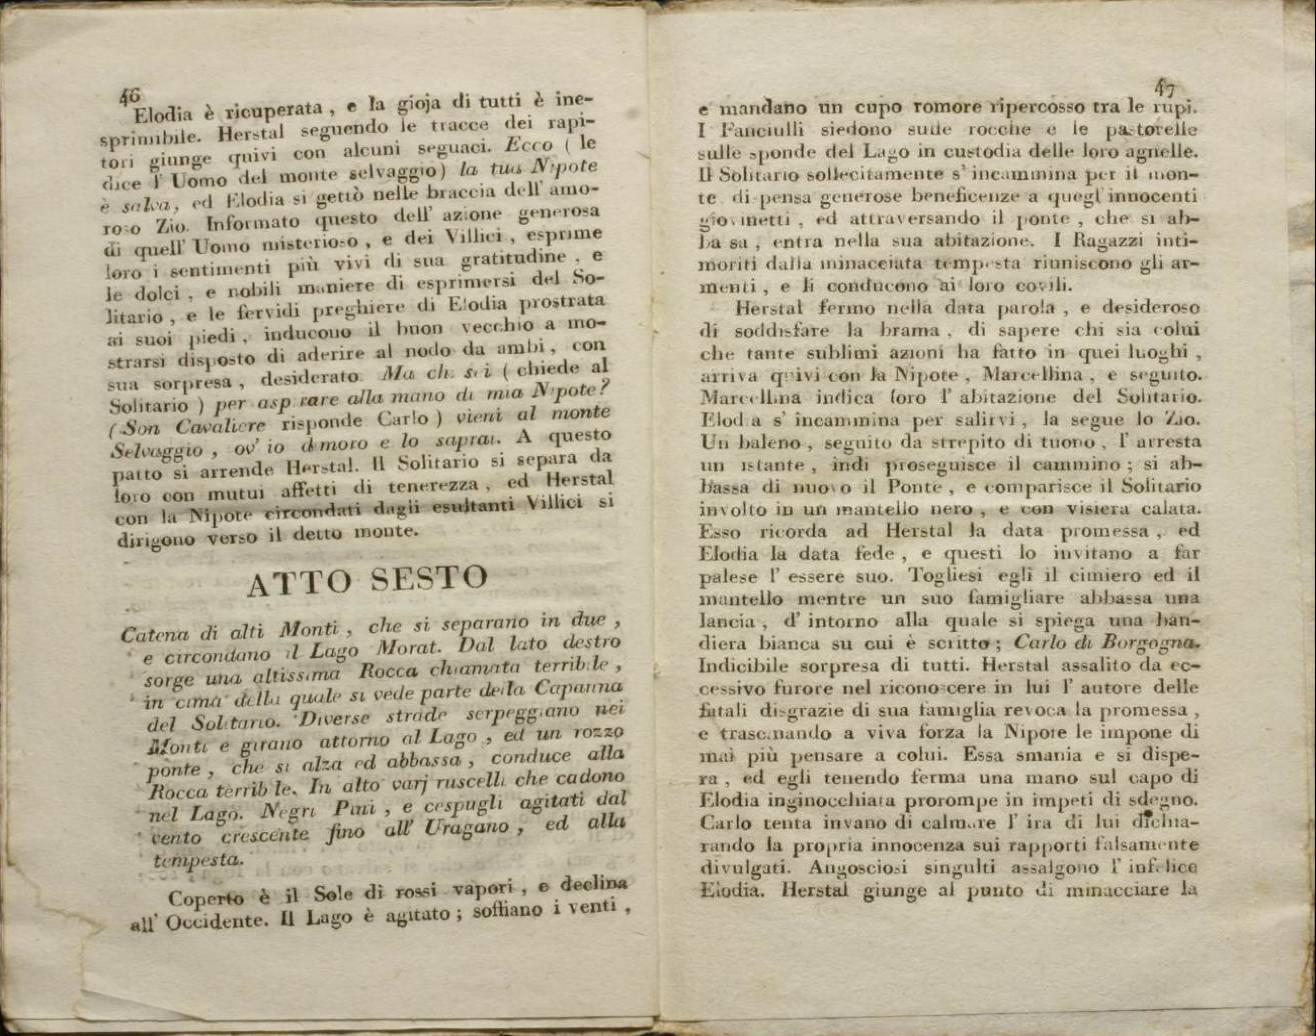 46
Elodia è ricuperata, e la gioja di tutti è ine-
sprimibile. Herstal seguendo le tracce dei rapi-
tori giunge quivi con alcuni seguaci. Ecco ( le
dice l' Uomo del monte selvaggio) la tua Nipote
è salva, ed Elodia si gettò nelle braccia dell' amo-
roso Zio. Informato questo dell' azione generosa
di quell' Uomo misterioso, e dei Villici, esprime
loro i sentimenti più vivi di sua gratitudine, e
le dolci, e nobili maniere di esprimersi del So-
litario, e le fervidi preghiere di Elodia prostrata
ai suoi piedi, inducono il buon vecchio a mo-
strarsi disposto di aderire al nodo da ambi, con
sua sorpresa, desiderato. Ma chi sei ( chiede al
Solitario ) per aspirare alla mano di mia Nipote?
(Son Cavaliere risponde Carlo ) vieni al monte
Selvaggio, ov' io dimoro e lo saprai. A questo
patto si arrende Herstal. Il Solitario si separa da
loro con mutui affetti di tenerezza, ed Herstal
con la Nipote circondati dagli esultanti Villici si
dirigono verso il detto monte.
ATTO SESTO
Catena di alti Monti, che si separano in due,
e circondano il Lago Morat. Dal lato destro
sorge una altissima Rocca chiamata terribile,
in cima della quale si vede parte della Capanna
del Solitario. Diverse strade serpeggiano nei
Monti e girano attorno al Lago, ed un rozzo
ponte, che si alza ed abbassa, conduce alla
Rocca terribile. In alto varj ruscelli che cadono
nel Lago. Negri Pini, e cespugli agitati dal
vento crescente fino all' Uragano, ed alla
tempesta.
Coperto è il Sole di rossi vapori, e declina
all' Occidente. Il Lago è agitato; soffiano i venti,
47
e mandano un cupo romore ripercosso tra le rupi.
I Fanciulli siedono sulle rocche e le pastorelle
sulle sponde del Lago in custodia delle loro agnelle.
Il Solitario sollecitamente s' incammina per il mon-
te dispensa generose beneficenze a quegl' innocenti
giovinetti, ed attraversando il ponte, che si ab-
bassa, entra nella sua abitazione. I Ragazzi inti-
moriti dalla minacciata tempesta riuniscono gli ar-
menti, e li conducono ai loro covili.
Herstal fermo nella data parola, e desideroso
di soddisfare la brama, di sapere chi sia colui
che tante sublimi azioni ha fatto in quei luoghi,
arriva quivi con la Nipote, Marcellina, e seguito.
Marcellina indica loro l' abitazione del Solitario.
Elodia s' incammina per salirvi, la segue lo Zio.
Un baleno, seguito da strepito di tuono, l' arresta
un istante, indi proseguisce il cammino; si ab-
bassa di nuovo il Ponte, e comparisce il Solitario
involto in un mantello nero, e con visiera calata.
Esso ricorda ad Herstal la data promessa, ed
Elodia la data fede, e questi lo invitano a far
palese l' essere suo. Togliesi egli il cimiero ed il
mantello mentre un suo famigliare abbassa una
lancia, d' intorno alla quale si spiega una ban-
diera bianca su cui è scritto; Carlo di Borgogna.
Indicibile sorpresa di tutti. Herstal assalito da ec-
cessivo furore nel riconoscere in lui l' autore delle
fatali disgrazie di sua famiglia revoca la promessa,
e trascinando a viva forza la Nipote le impone di
mai più pensare a colui. Essa smania e si dispe-
ra, ed egli tenendo ferma una mano sul capo di
Elodia inginocchiata prorompe in impeti di sdegno.
Carlo tenta invano di calmare l' ira di lui dichia-
rando la propria innocenza sui rapporti falsamente
divulgati. Angosciosi singulti assalgono l' infelice
Elodia. Herstal giunge al punto di minacciare la